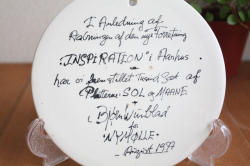 I Anledning af
Aabningen af den nye Forretning
"INSPIRATION" i Aarhus
har vi fremstillet Tusind Sæt af
Platterne: SOL og MAANE
i
Bjørn Wiinblad
for
NYMØLLE
August 1977